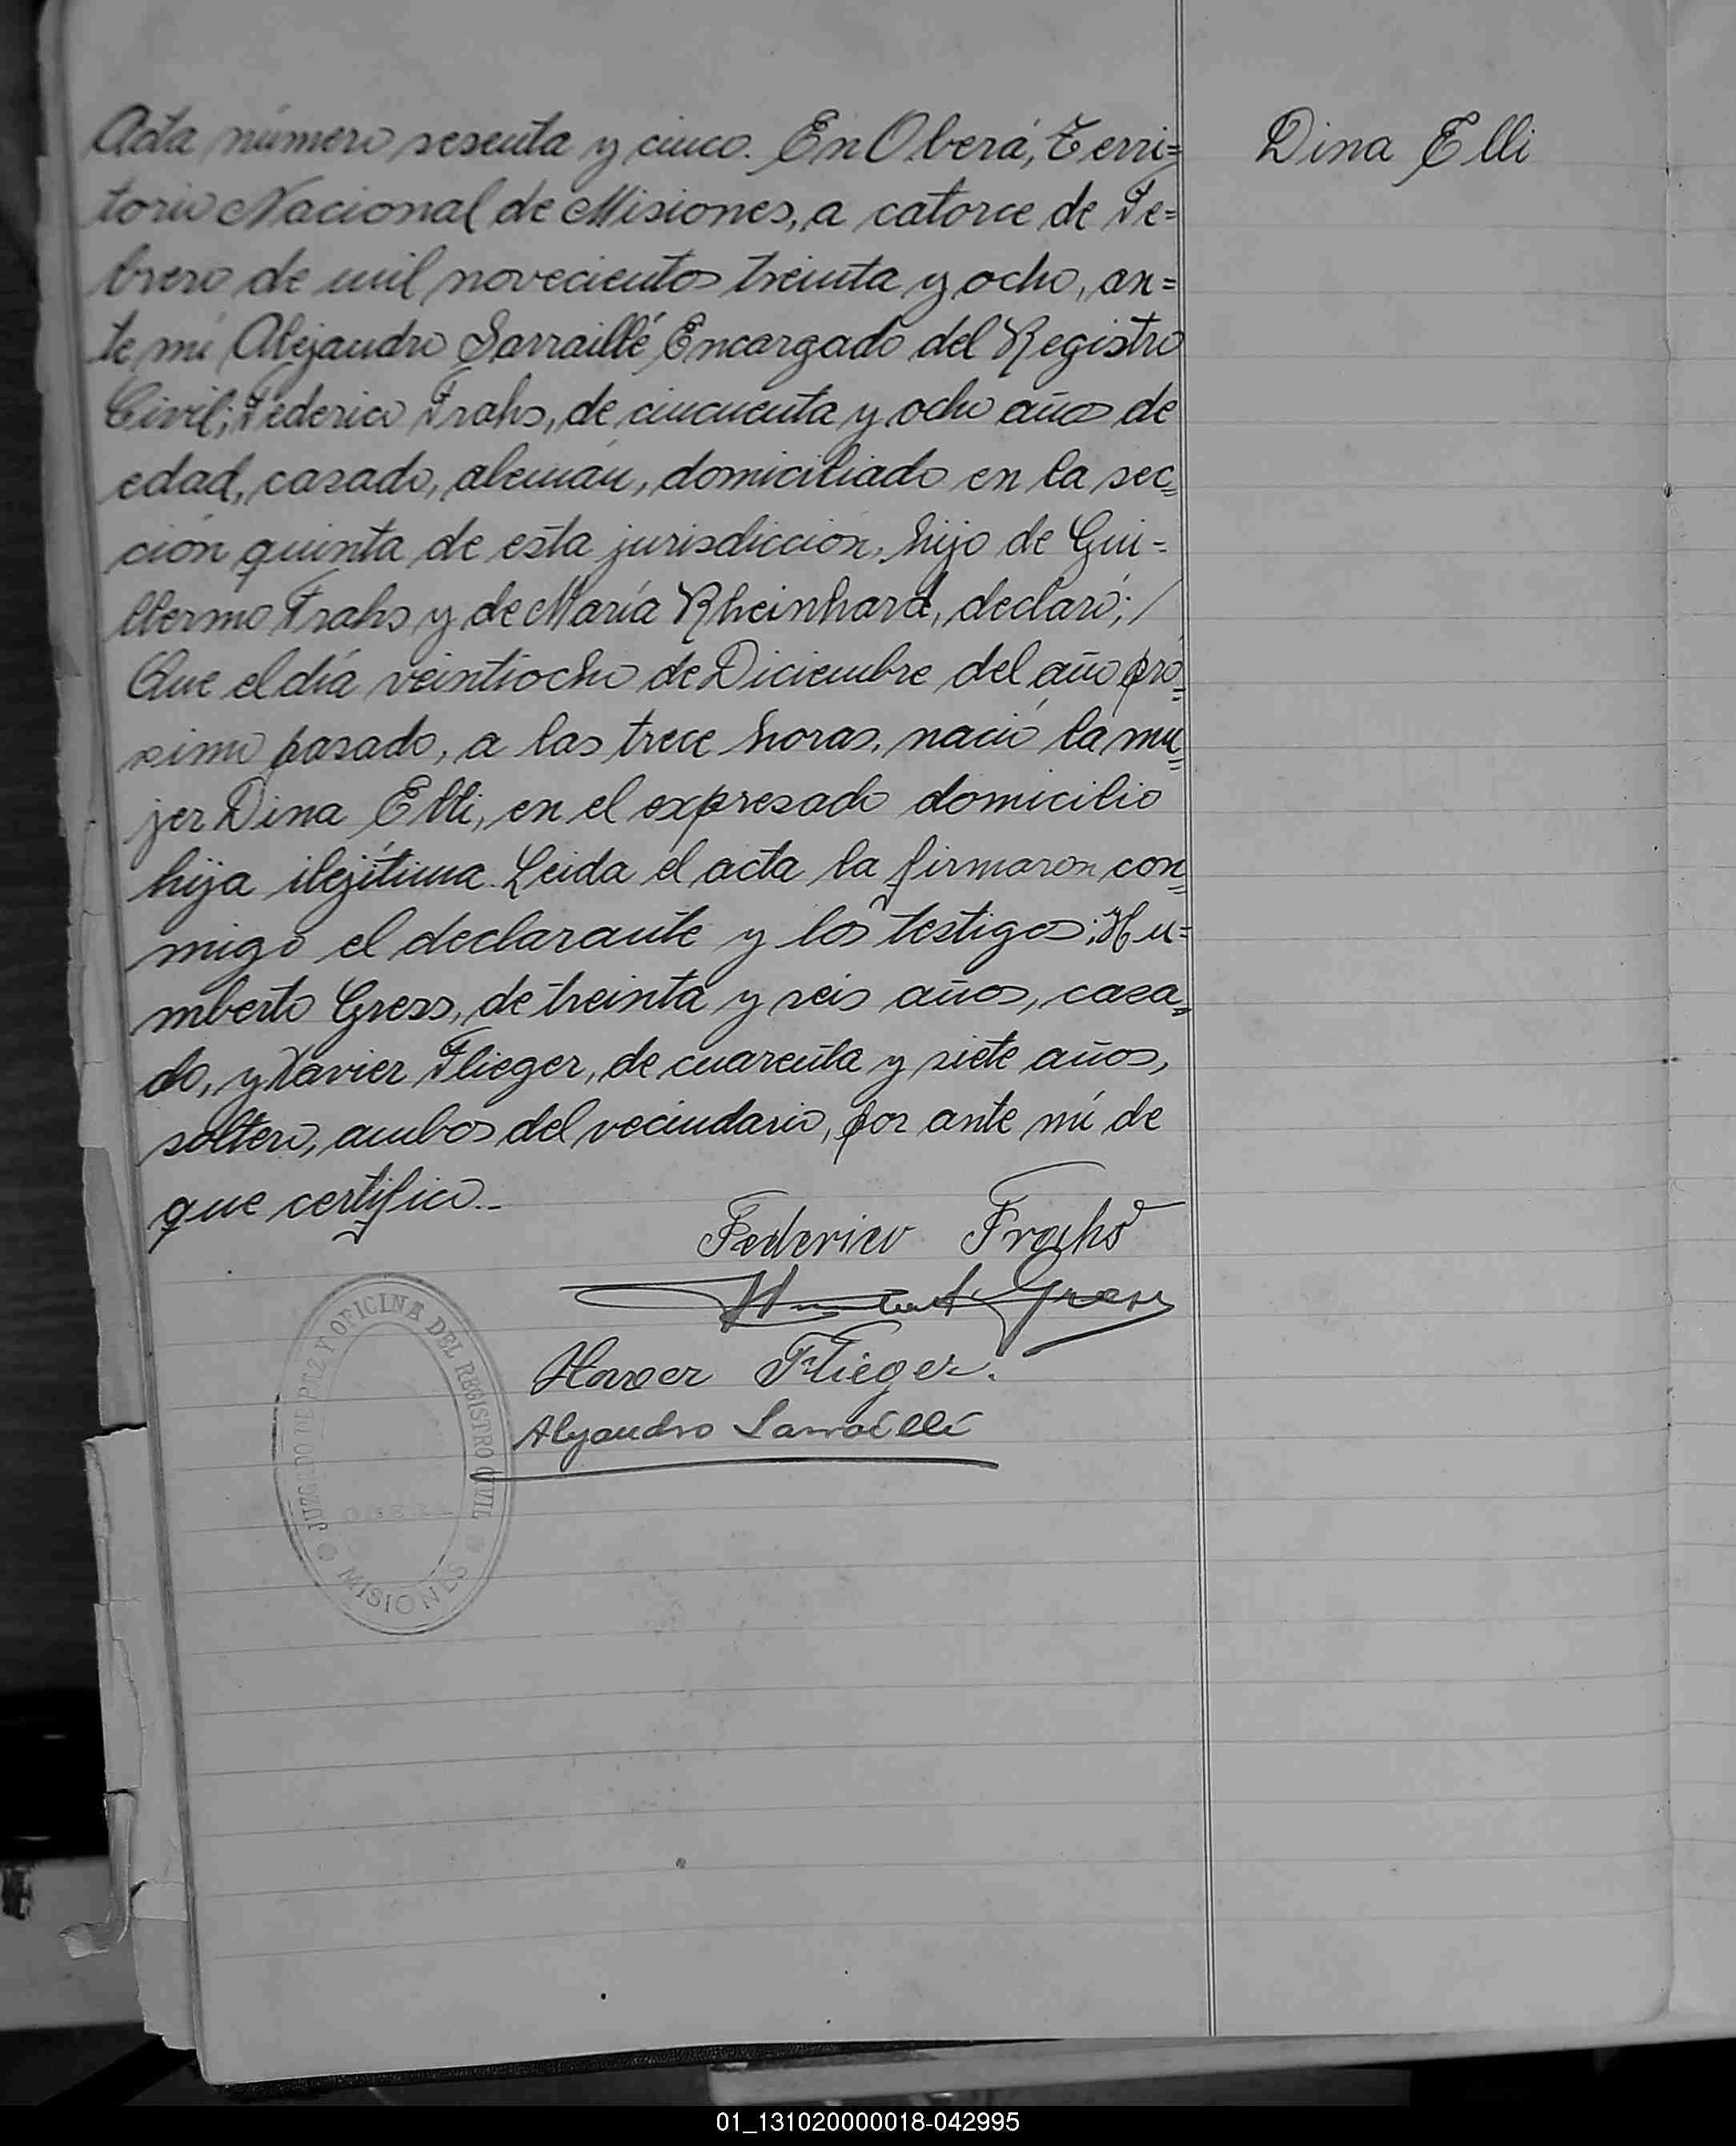 Acta número sesenta y cinco. En Oberá, Terri=
torio Nacional de Misiones, a catorce de Fe=
brero de mil novecientos treinta y ocho, an=
te mí Alejandro Sarraillé Encargado del Registro
Civil; Federico Frahs, de cincuenta y ocho años de
edad, casado, alemán, domiciliado en la sec=
ción quinta de esta jurisdicción, hijo de Gui=
llermo Frahs y de María Rheinhard, declaró; /
Que el día veintiocho de Diciembre del año pró=
ximo pasado, a las trece horas, nació la mu=
jer Dina Elli, en el expresado domicilio
hija ilejítima. Leída el acta la firmaron con=
migo el declarante y los testigos; Hu=
mberto Gress, de treinta y seis años, casa=
do, y Xavier Flieger, de cuarenta y siete años,
soltero, ambos del vecindario, por ante mí de
que certifico.-
Dina Elli
Federico Frahs
Humberto Gress
Xaver Flieger.
Alejandro Sarraillé
JUZGADO DE PAZ Y OFICINA DEL REGISTRO CIVIL
MISIONES
01_131020000018-042995